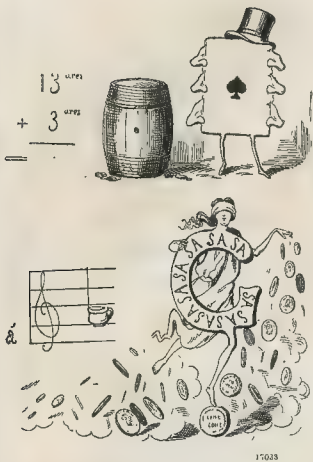 13 ares
+ 3 ares
G
SA SA SA SA SA SA SA SA SA SA
á